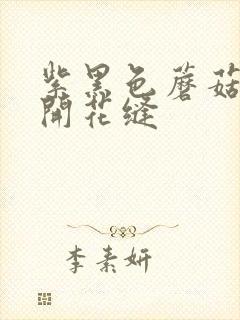 紫黑色蘑菇
開花缝
李素妍